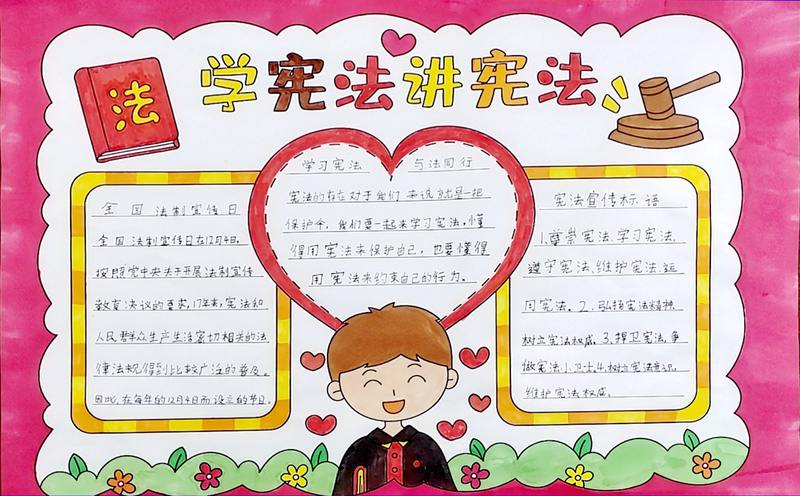 学宪法讲宪法
法
全国法制宣传日
全国法制宣传日在12月4日,
按照党中央关于开展法制宣传
教育决议的要求,17年来,宪法和
人民群众生产生活密切相关的法
律法规得到比较广泛的普及。
因此,在每年的12月4日而设立的节日。
学习宪法 与法同行
宪法的存在对于我们来说就是一把
保护伞,我们要一起来学习宪法,懂
得用宪法来保护自己,也要懂得
用宪法来约束自己的行为。
宪法宣传标语
1.尊崇宪法、学习宪法、
遵守宪法、维护宪法、运
用宪法。2、弘扬宪法精神,
树立宪法权威。3、捍卫宪法,争
做宪法小卫士4.树立宪法意识,
维护宪法权威。